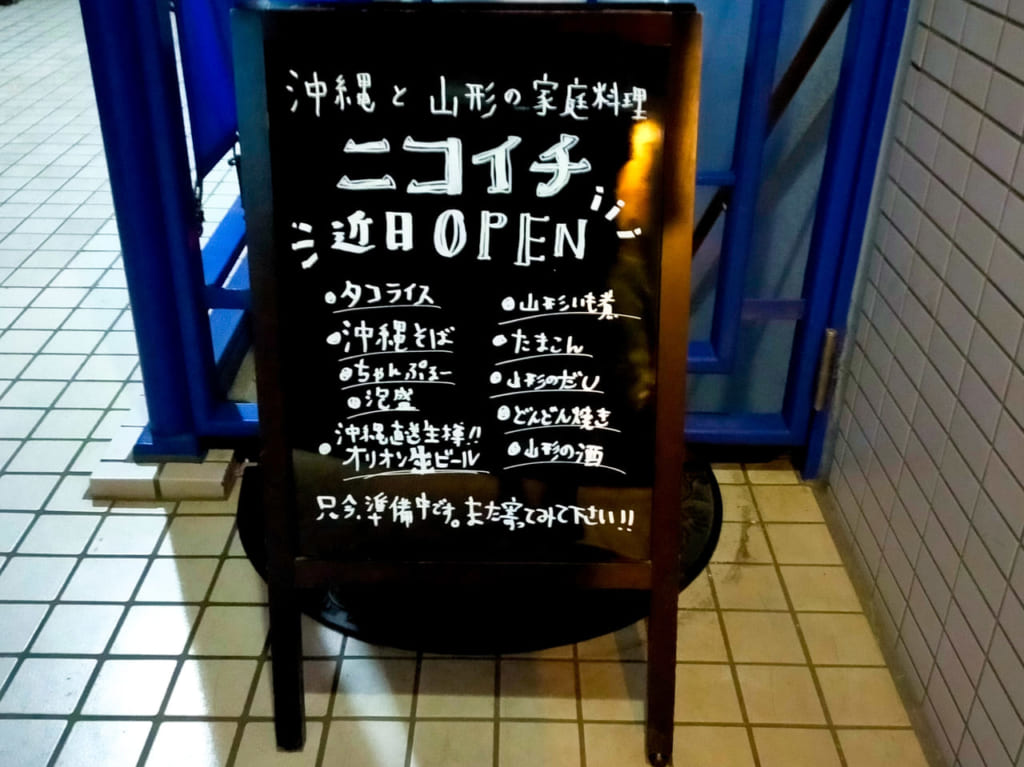 沖縄と山形の家庭料理
ニコイチ
近日OPEN
・タコライス
・沖縄そば
・ちゃんぷるー
・泡盛
・沖縄直送生樽!!
オリオン生ビール
・山形いも煮
・たまこん
・山形のだし
・どんどん焼き
・山形の酒
只今、準備中です。また寄ってみて下さい!!